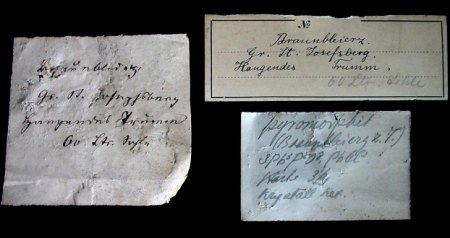 Braunbleierz
Gr. St. Josephsberg
Hangendes Trumm
60 Ltr. Sohle
№
Braunbleierz.
Gr. St. Josefsberg.
Hangendes Trumm.
60 Ltr. Sohle
Pyromorphit
(Braunbleierz z. T.)
Krystall